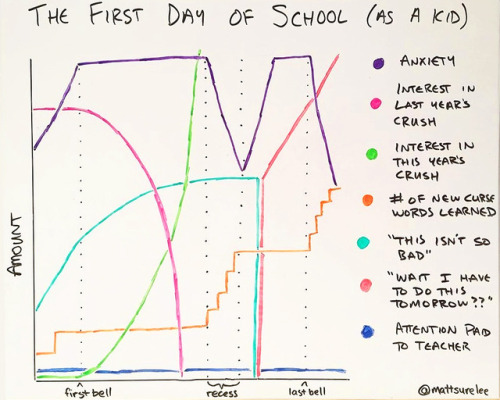 THE FIRST DAY OF SCHOOL (AS A KID)
ANXIETY
INTEREST IN
LAST YEAR'S
CRUSH
INTEREST IN
THIS YEAR'S
CRUSH
# OF NEW CURSE
WORDS LEARNED
"THIS ISN'T SO
BAD"
"WAIT I HAVE
TO DO THIS
TOMORROW??"
ATTENTION PAID
TO TEACHER
AMOUNT
first bell
recess
last bell
@mattsurelee